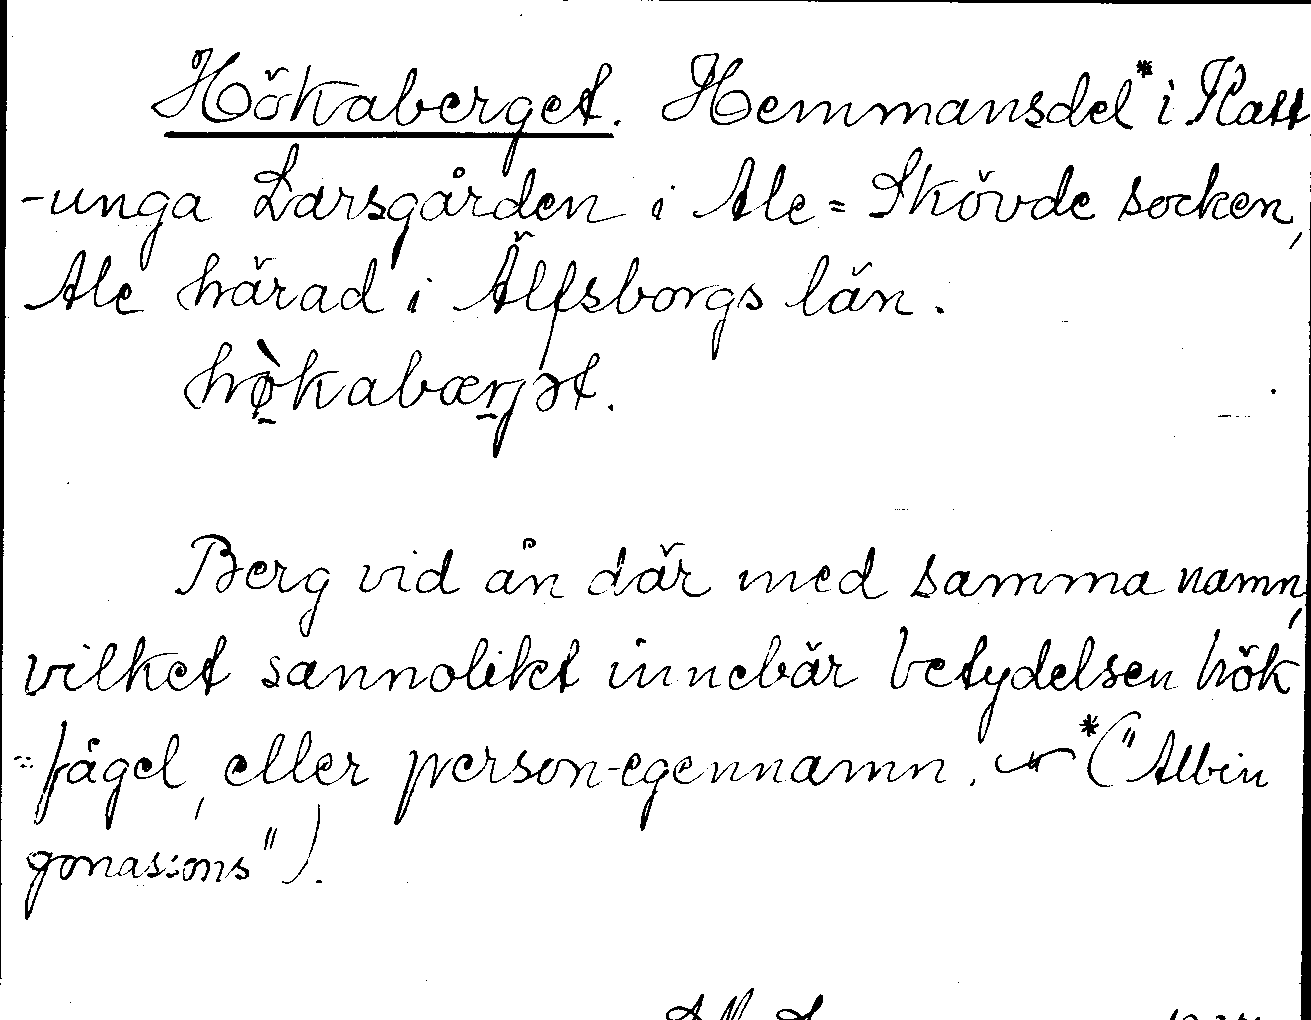 Hökaberget. Hemmansdel* i Katt
-unga Larsgården i Ale=Skövde socken,
Ale härad i Älfsborgs län.
hø̀kabærjət.
Berg vid ån där med samma namn,
vilket sannolikt innebär betydelsen hök
=fågel, eller person-egennamn. *("Albin
Jonassons").